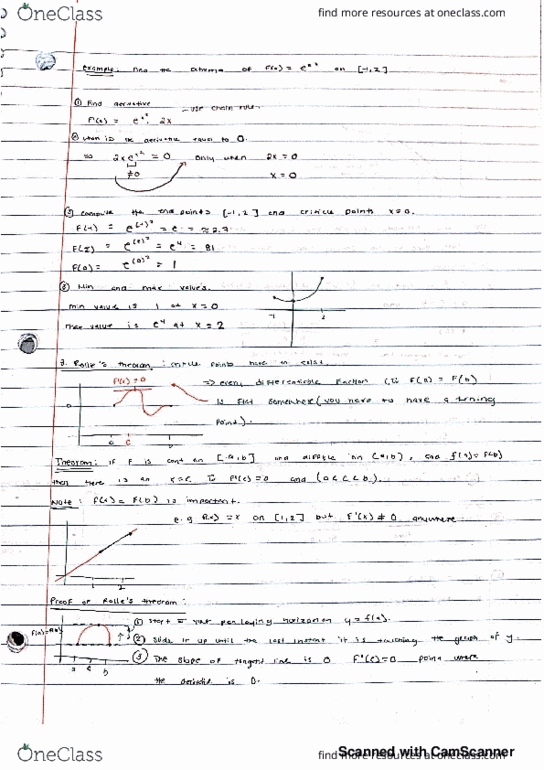 OneClass
find more resources at oneclass.com
example: find the extrema of f(x) = e^x² on [-1,2]
① Find derivative - use chain rule.
F'(x) = e^x² · 2x
② when is the derivative equal to 0.
=> 2xe^x² = 0 only when 2x = 0
≠0
x = 0
③ compute the end points [-1,2] and critical points x=0.
F(-1) = e^(-1)² = e = ≈ 2.7
F(2) = e^(2)² = e⁴ = 81
F(0) = e^(0)² = 1
Min and max values.
min value is 1 at x = 0
max value is e⁴ at x = 2
-1 2
2. Rolle's theorem : points have to exist.
F'(c) = 0
=> every differentiable function F(a) = F(b)
is flat somewhere (you have to have a turning
point).
a c b
Theorem: if F is cont on [a,b] and on (a,b), and f(a) = F(b)
then there is an x=c F'(c) = 0 and (a<c<b).
Note: f(a) = F(b) is important.
e.g f(x) = x on [1,2] but F'(x) ≠ 0 anywhere
1 2
Proof of Rolle's theorem:
① Start horizontal y = f(a).
② Slide it up until the last instant it is touching the graph of y.
③ The slope of tangent line is 0 F'(c)=0 point where
the derivative is 0.
Scanned with CamScanner
OneClass
find more resources at oneclass.com